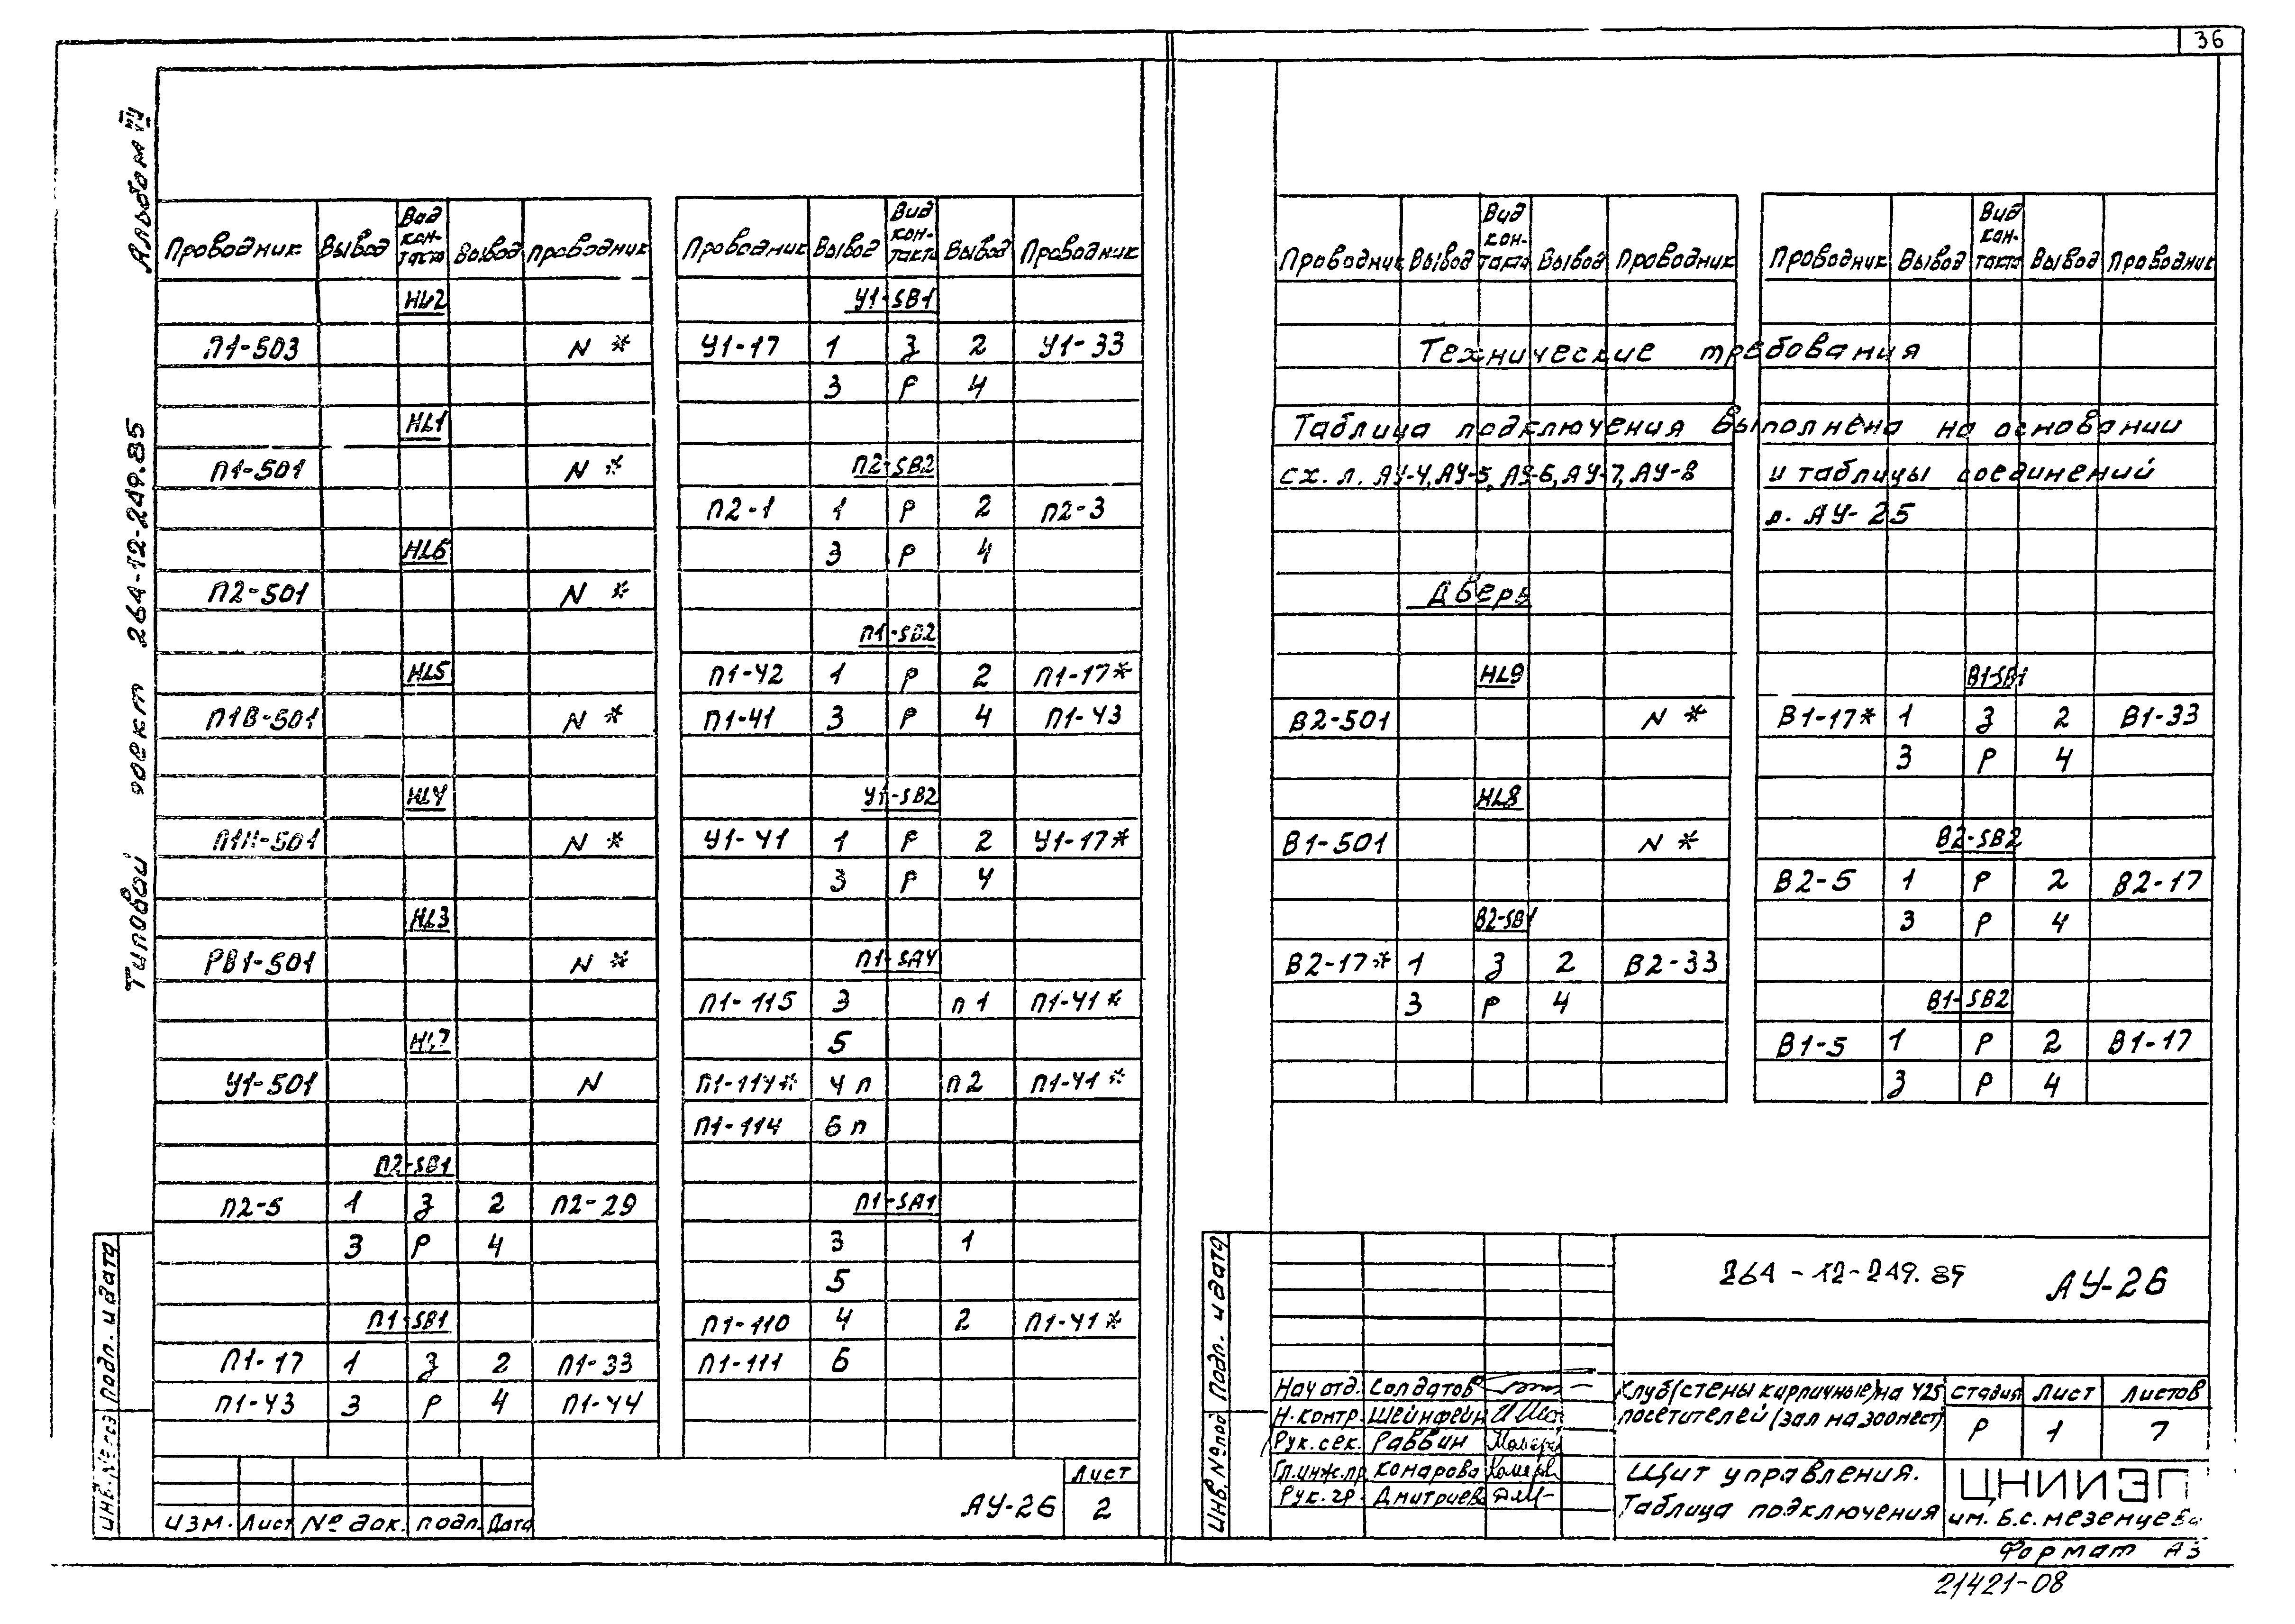 36
Альбом
Типовой 264-12-249.85
Проводник Вывод Вид кон-такта Вывод Проводник
HL2
П1-503 N *
HL1
П1-501 N *
HL6
П2-501 N *
HL5
П1В-501 N *
HL4
П1Н-501 N *
HL3
РВ1-501 N *
HL7
У1-501 N
П2-SB1
П2-5 1 З 2 П2-29
3 Р 4
П1-SB1
П1-17 1 З 2 П1-33
П1-43 3 Р 4 П1-44
Проводник Вывод Вид кон-такта Вывод Проводник
У1-SB1
У1-17 1 З 2 У1-33
3 Р 4
П2-SB2
П2-1 1 Р 2 П2-3
3 Р 4
П1-SB2
П1-42 1 Р 2 П1-17*
П1-41 3 Р 4 П1-43
У1-SB2
У1-41 1 Р 2 У1-17*
3 Р 4
П1-SA4
П1-115 3 п1 П1-41*
5
П1-114* 4п п2 П1-41*
П1-114 6п
П1-SA1
3 1
5
П1-110 4 2 П1-41*
П1-111 6
Изм. Лист № док. подп. Дата
АУ-26
Лист
2
Инв. № подп. и дата
Проводник Вывод Вид кон-такта Вывод Проводник
Проводник Вывод Вид кон-такта Вывод Проводник
Технические требования
Таблица подключения выполнена на основании
сх. л. АУ-4, АУ-5, АУ-6, АУ-7, АУ-8 и таблицы соединений
л. АУ-25
Дверь
HL9
В2-501 N *
HL8
В1-501 N *
В2-SB1
В2-17* 1 З 2 В2-33
3 Р 4
В1-SB1
В1-17* 1 З 2 В1-33
3 Р 4
В2-SB2
В2-5 1 Р 2 В2-17
3 Р 4
В1-SB2
В1-5 1 Р 2 В1-17
3 Р 4
Инв. № под Подп. и дата
264-12-249.85 АУ-26
Нач отд. Солдатов
Н.контр. Шейнфейн
Рук. сек. Раввин
Гл.инж.пр Комарова
Рук. гр. Дмитриева
Клуб (стены кирпичные) на 425
посетителей (зал на 300 мест)
Стадия Лист Листов
Р 1 7
Щит управления.
Таблица подключения
ЦНИИЭП
им. Б.С. Мезенцева
Формат А3
21421-08